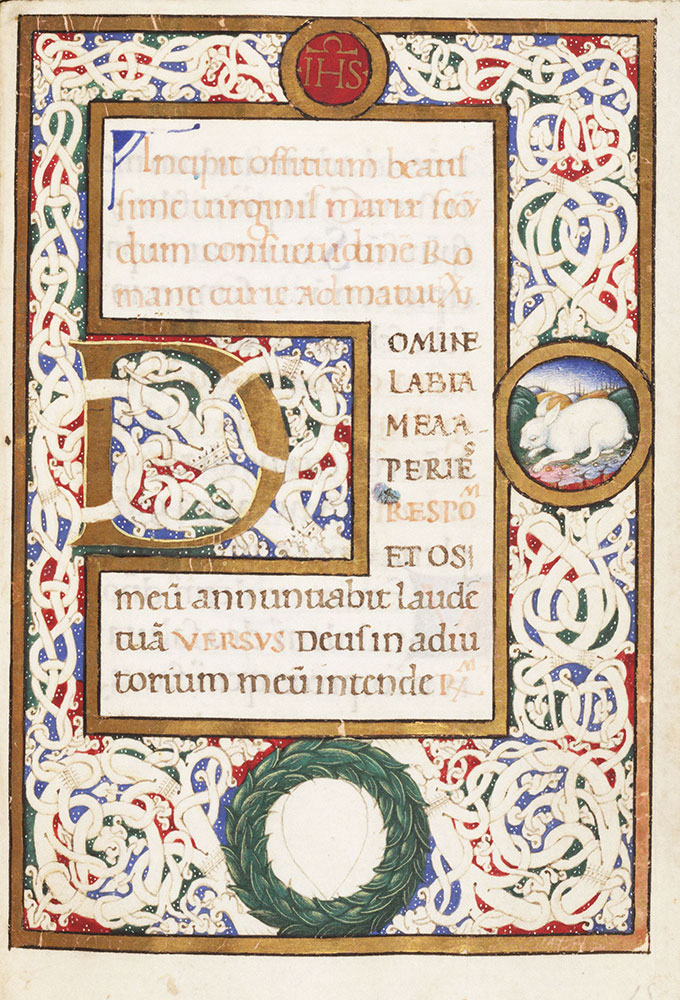 IHS
Incipit offitium beatis
sime virginis mariæ secũ
dum consuetudinẽ Ro
mane curie ad matut. ℣.
DOMINE
LABIA
MEA A
PERIES
RESPOM̃
ET OS
meũ annuntiabit laudẽ
tuã VERSUS Deus in adiu
torium meũ intende